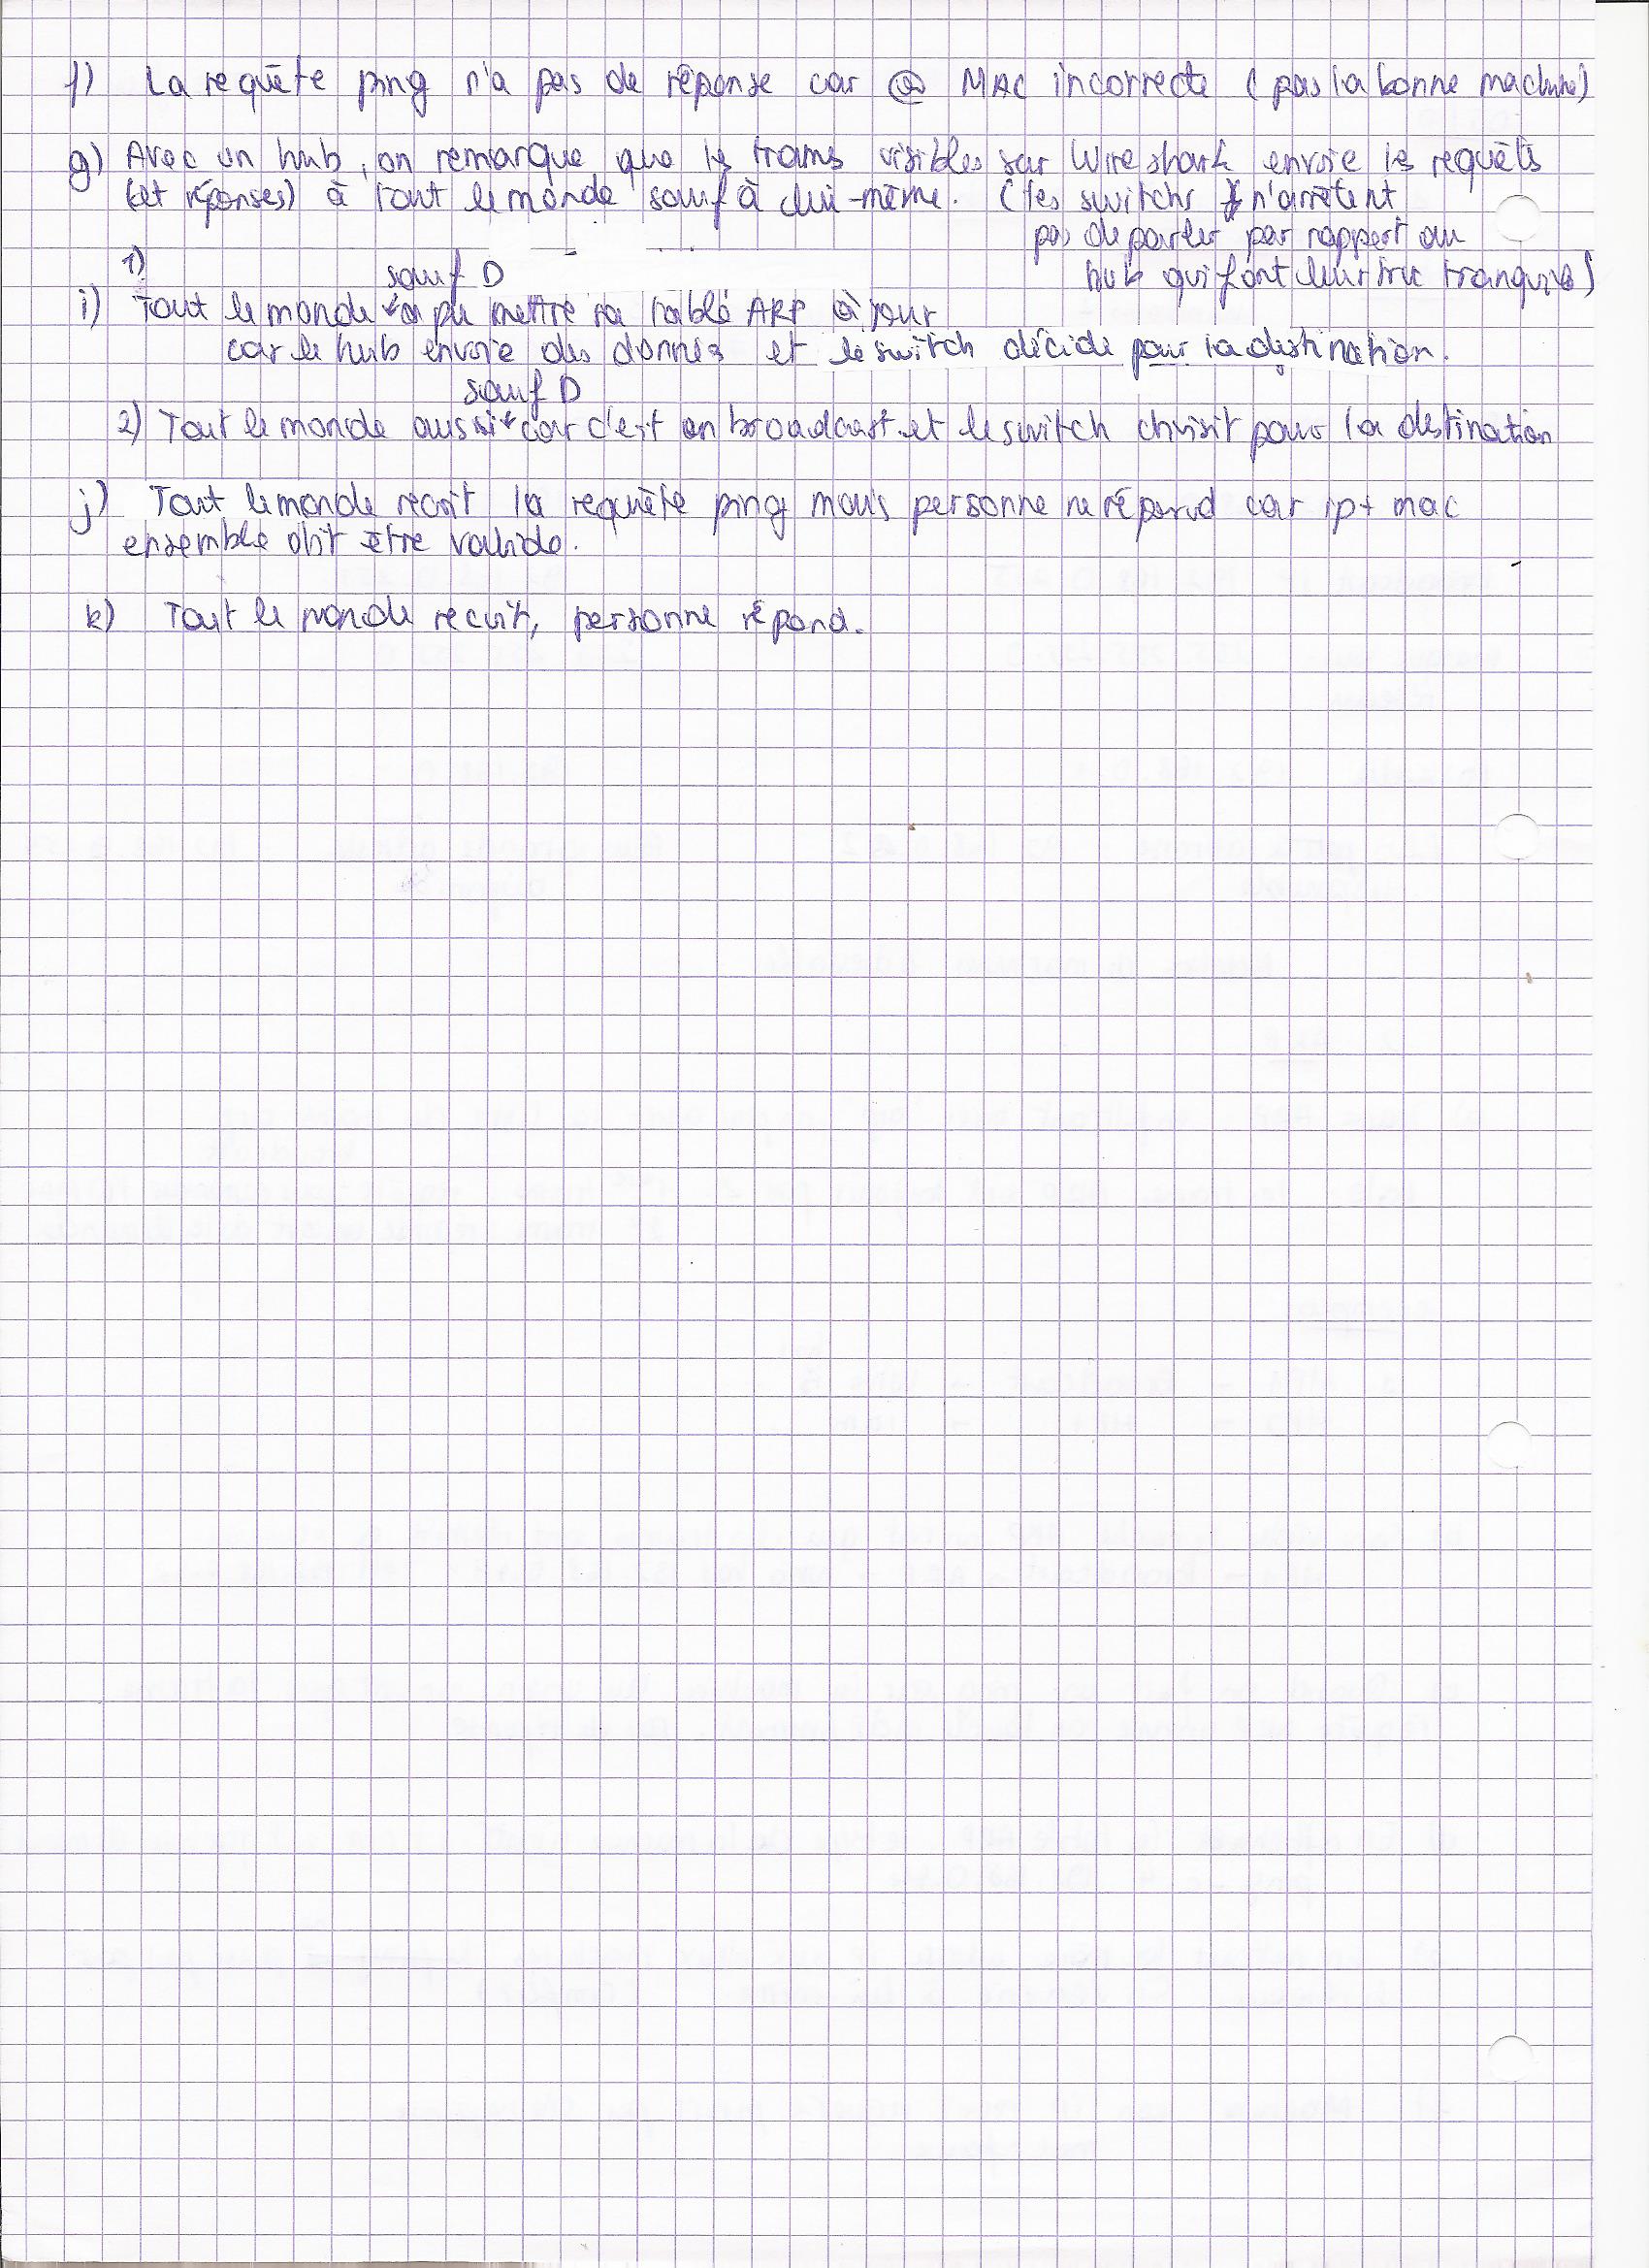 f) La requête ping n'a pas de réponse car @ MAC incorrecte (pas la bonne machine)
g) Avec un hub, on remarque que les trams visibles sur Wireshark envoie les requêts
(et réponses) à tout le monde sauf à lui-même. (les switchs n'arrêtent
pas de parler par rapport au
hub qui font leur truc tranquile)
1)
sauf D
i) Tout le monde a pu mettre sa table ARP à jour
car le hub envoie des donnés et le switch décide pour la destination.
sauf D
2) Tout le monde aussi car c'est en broadcast et le switch choisit pour la destination
j) Tout le monde recoit la requête ping mais personne ne répond car ip + mac
ensemble doit être valide.
k) Tout le monde recoit, personne répond.